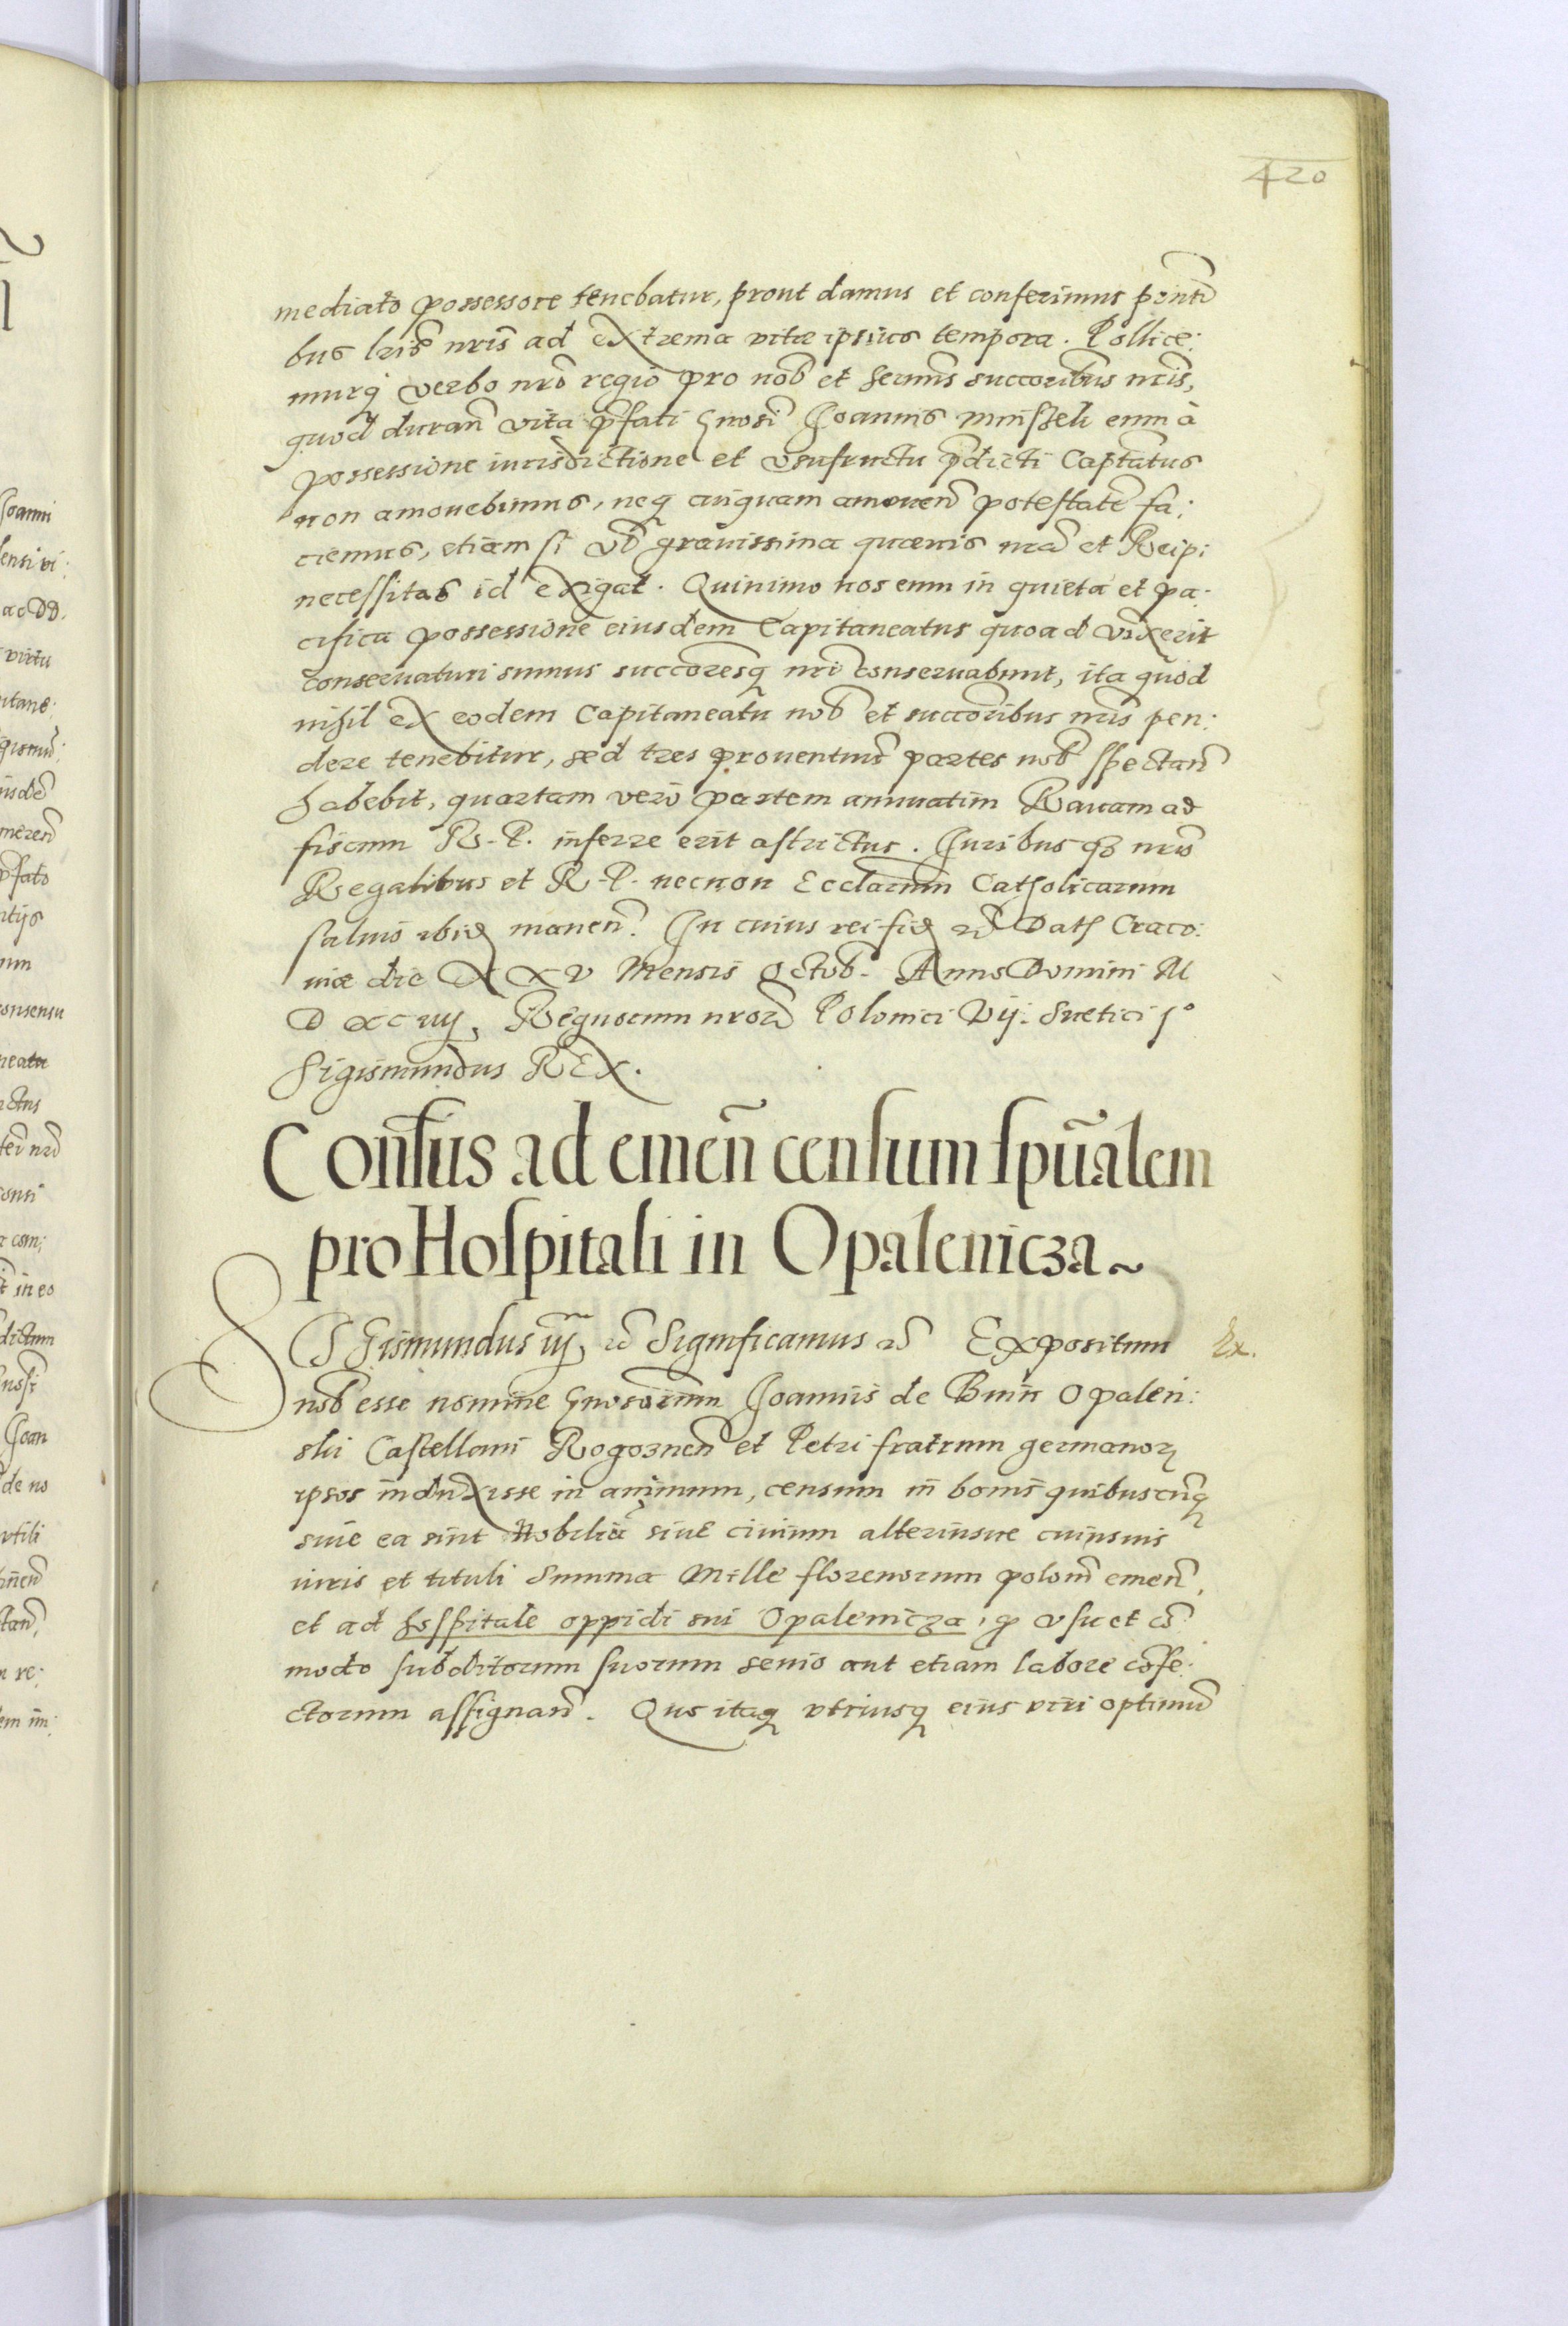 420
mediato possessore tenebatur, prout damus et conferimus pñti
bus lris nris ad extrema vitæ ipsius tempora. Pollice:
murq verbo nrō regio pro nob et sermis succoribus nris,
quod duran vita pfati Gnosi Joannis eum à
possessione iurisdictione et vsufructu pdicti Captatus
non amovebimus, neq cuiquam amouen potestate fa:
ciemus, etiam si vb grauissima quæuis nra et Reipi
necessitas id exigat. Quinimo nos eum in quieta et pa:
cifica possessione eiusdem Capitaneatus quoad vixerit
conservaturi sumus succoresq nri conservabunt, ita quod
nihil ex eodem Capitaneatu nob et succoribus nris pen:
dere tenebitur, sed tres prouentuu partes nob spectan
habebit, quartam vero partem annuatim Rauam ad
fiscum R. P. inferre erit astrictus. Juribus qz nris
Regalibus et R. P. necnon Ecclarum Catholicarum
saluis ibid manen. In cuius rei fid &c Dat Craco:
uiæ die XXV Mensis Octob. Anno Domini M
D XC iiij, Regnorum nror Polonici Vij. Suetici j°
Sigismundus REX.
Consus ad emen censum spualem
pro Hospitali in Opalenicza~
SIGismundus iij, &c Significamus &c Expositum Ex.
nob esse nomine Gnosorum Joannis de Bnin Opalen:
ski Castellani Rogoznen et Petri fratrum germanor
ipsos induxisse in animum, censum in bonis quibuscunq
siue ea sint Nobiliu siue ciuium alteriusue cuiusuis
iuris et tituli Summa Mille florenorum polon emen,
et ad hospitale oppidi sui Opalenicza, p vsu et co
modo subditorum suorum senio aut etiam labore cofe:
ctorum assignan. Quo itaq vtriusq eius viri optimu